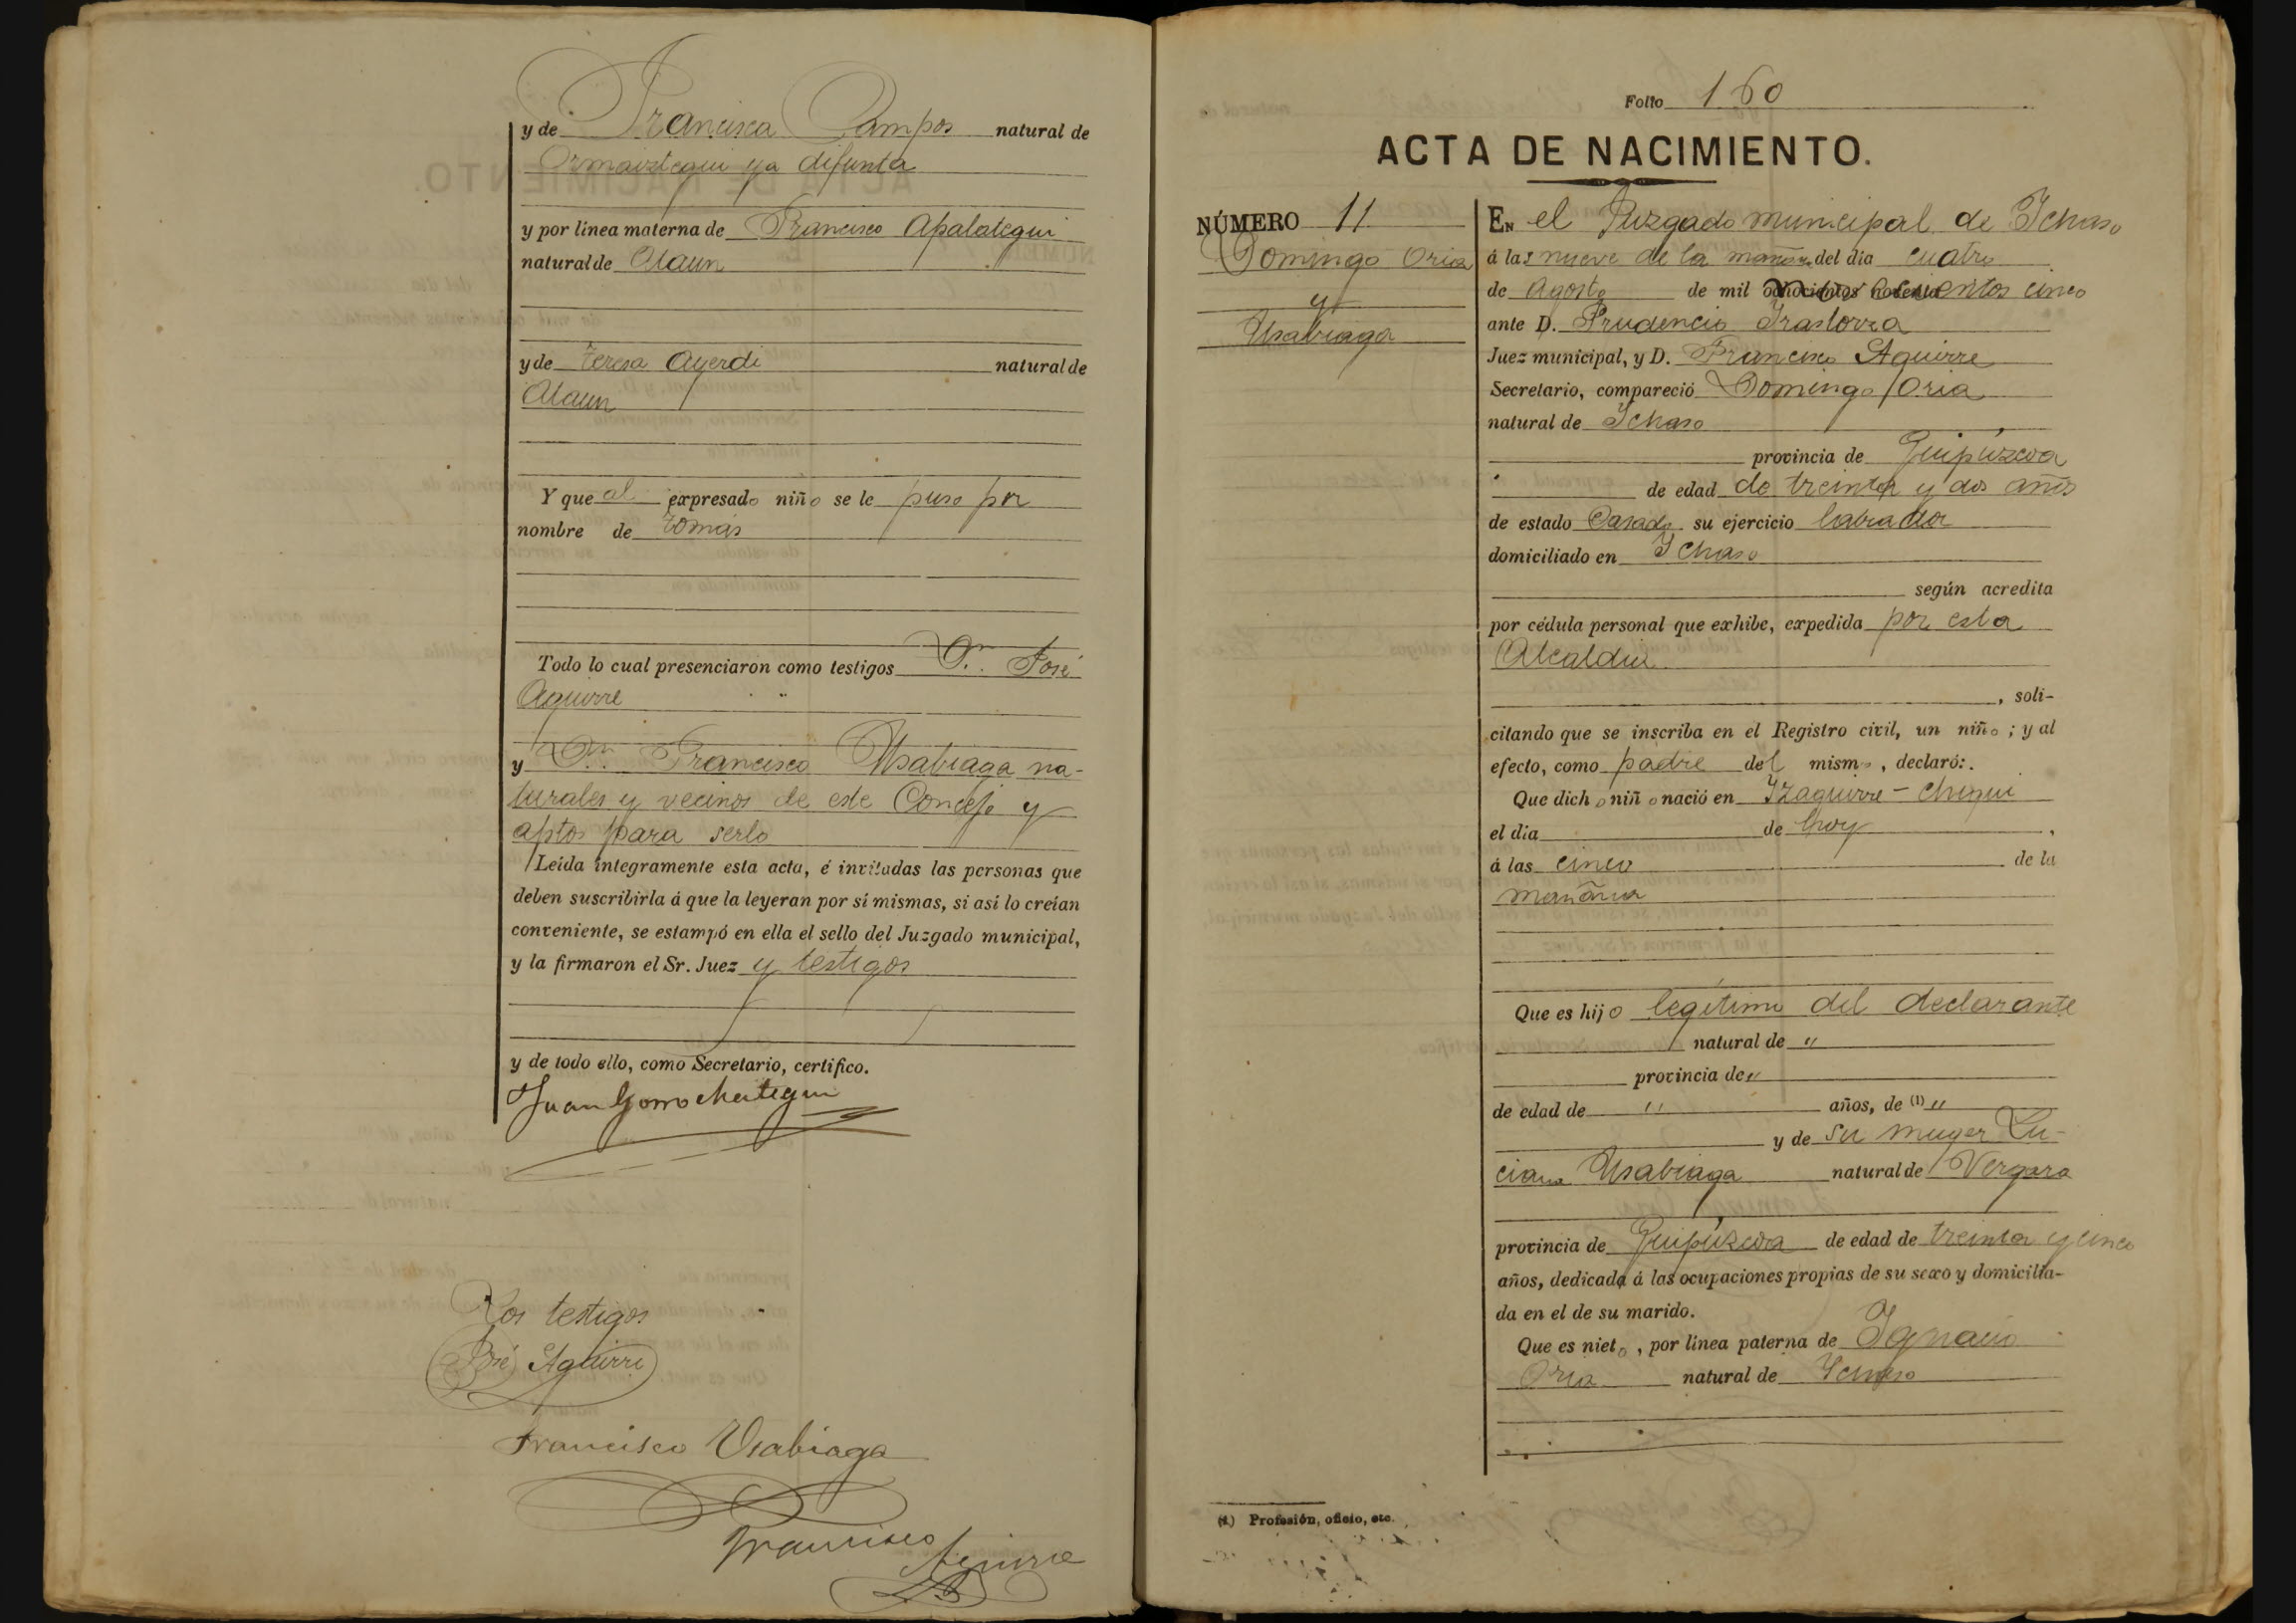 y de Francisca Campos natural de
Ormaiztegui ya difunta
y por línea materna de Francisco Apalategui
natural de Ataun
y de Teresa Ayerdi natural de
Ataun
Y que al expresado niño se le puso por
nombre de Tomás
Todo lo cual presenciaron como testigos Dn. José
Aguirre
y Dn. Francisco Usabiaga na-
turales y vecinos de este Concejo y
aptos para serlo
Leída íntegramente esta acta, é invitadas las personas que
deben suscribirla á que la leyeran por sí mismas, si así lo creían
conveniente, se estampó en ella el sello del Juzgado municipal,
y la firmaron el Sr. Juez y testigos
y de todo ello, como Secretario, certifico.
Juan Gorrochategui
Los testigos
José Aguirre
Francisco Usabiaga
Francisco Aguirre
Folio 160
ACTA DE NACIMIENTO.
NÚMERO 11
Domingo Oria
y
Usabiaga
EN el Juzgado municipal de Ichaso
á las nueve de la mañana del día cuatro
de Agosto de mil novecientos cinco
ante D. Prudencio Irastorza
Juez municipal, y D. Francisco Aguirre
Secretario, compareció Domingo Oria
natural de Ichaso
provincia de Guipúzcoa
de edad de treinta y dos años
de estado Casado su ejercicio labrador
domiciliado en Ichaso
según acredita
por cédula personal que exhibe, expedida por esta
Alcaldía
, soli-
citando que se inscriba en el Registro civil, un niño ; y al
efecto, como padre del mismo , declaró:.
Que dicho niño nació en Izaguirre - chiqui
el día de hoy ,
á las cinco de la
mañana
Que es hijo legítimo del declarante
natural de "
provincia de "
de edad de " años, de (1) "
y de su muger Lu-
ciana Usabiaga natural de Vergara
provincia de Guipúzcoa de edad de treinta y cinco
años, dedicada á las ocupaciones propias de su sexo y domicilia-
da en el de su marido.
Que es nieto , por línea paterna de Ignacio
Oria natural de Ichaso
(1) Profesión, oficio, etc.